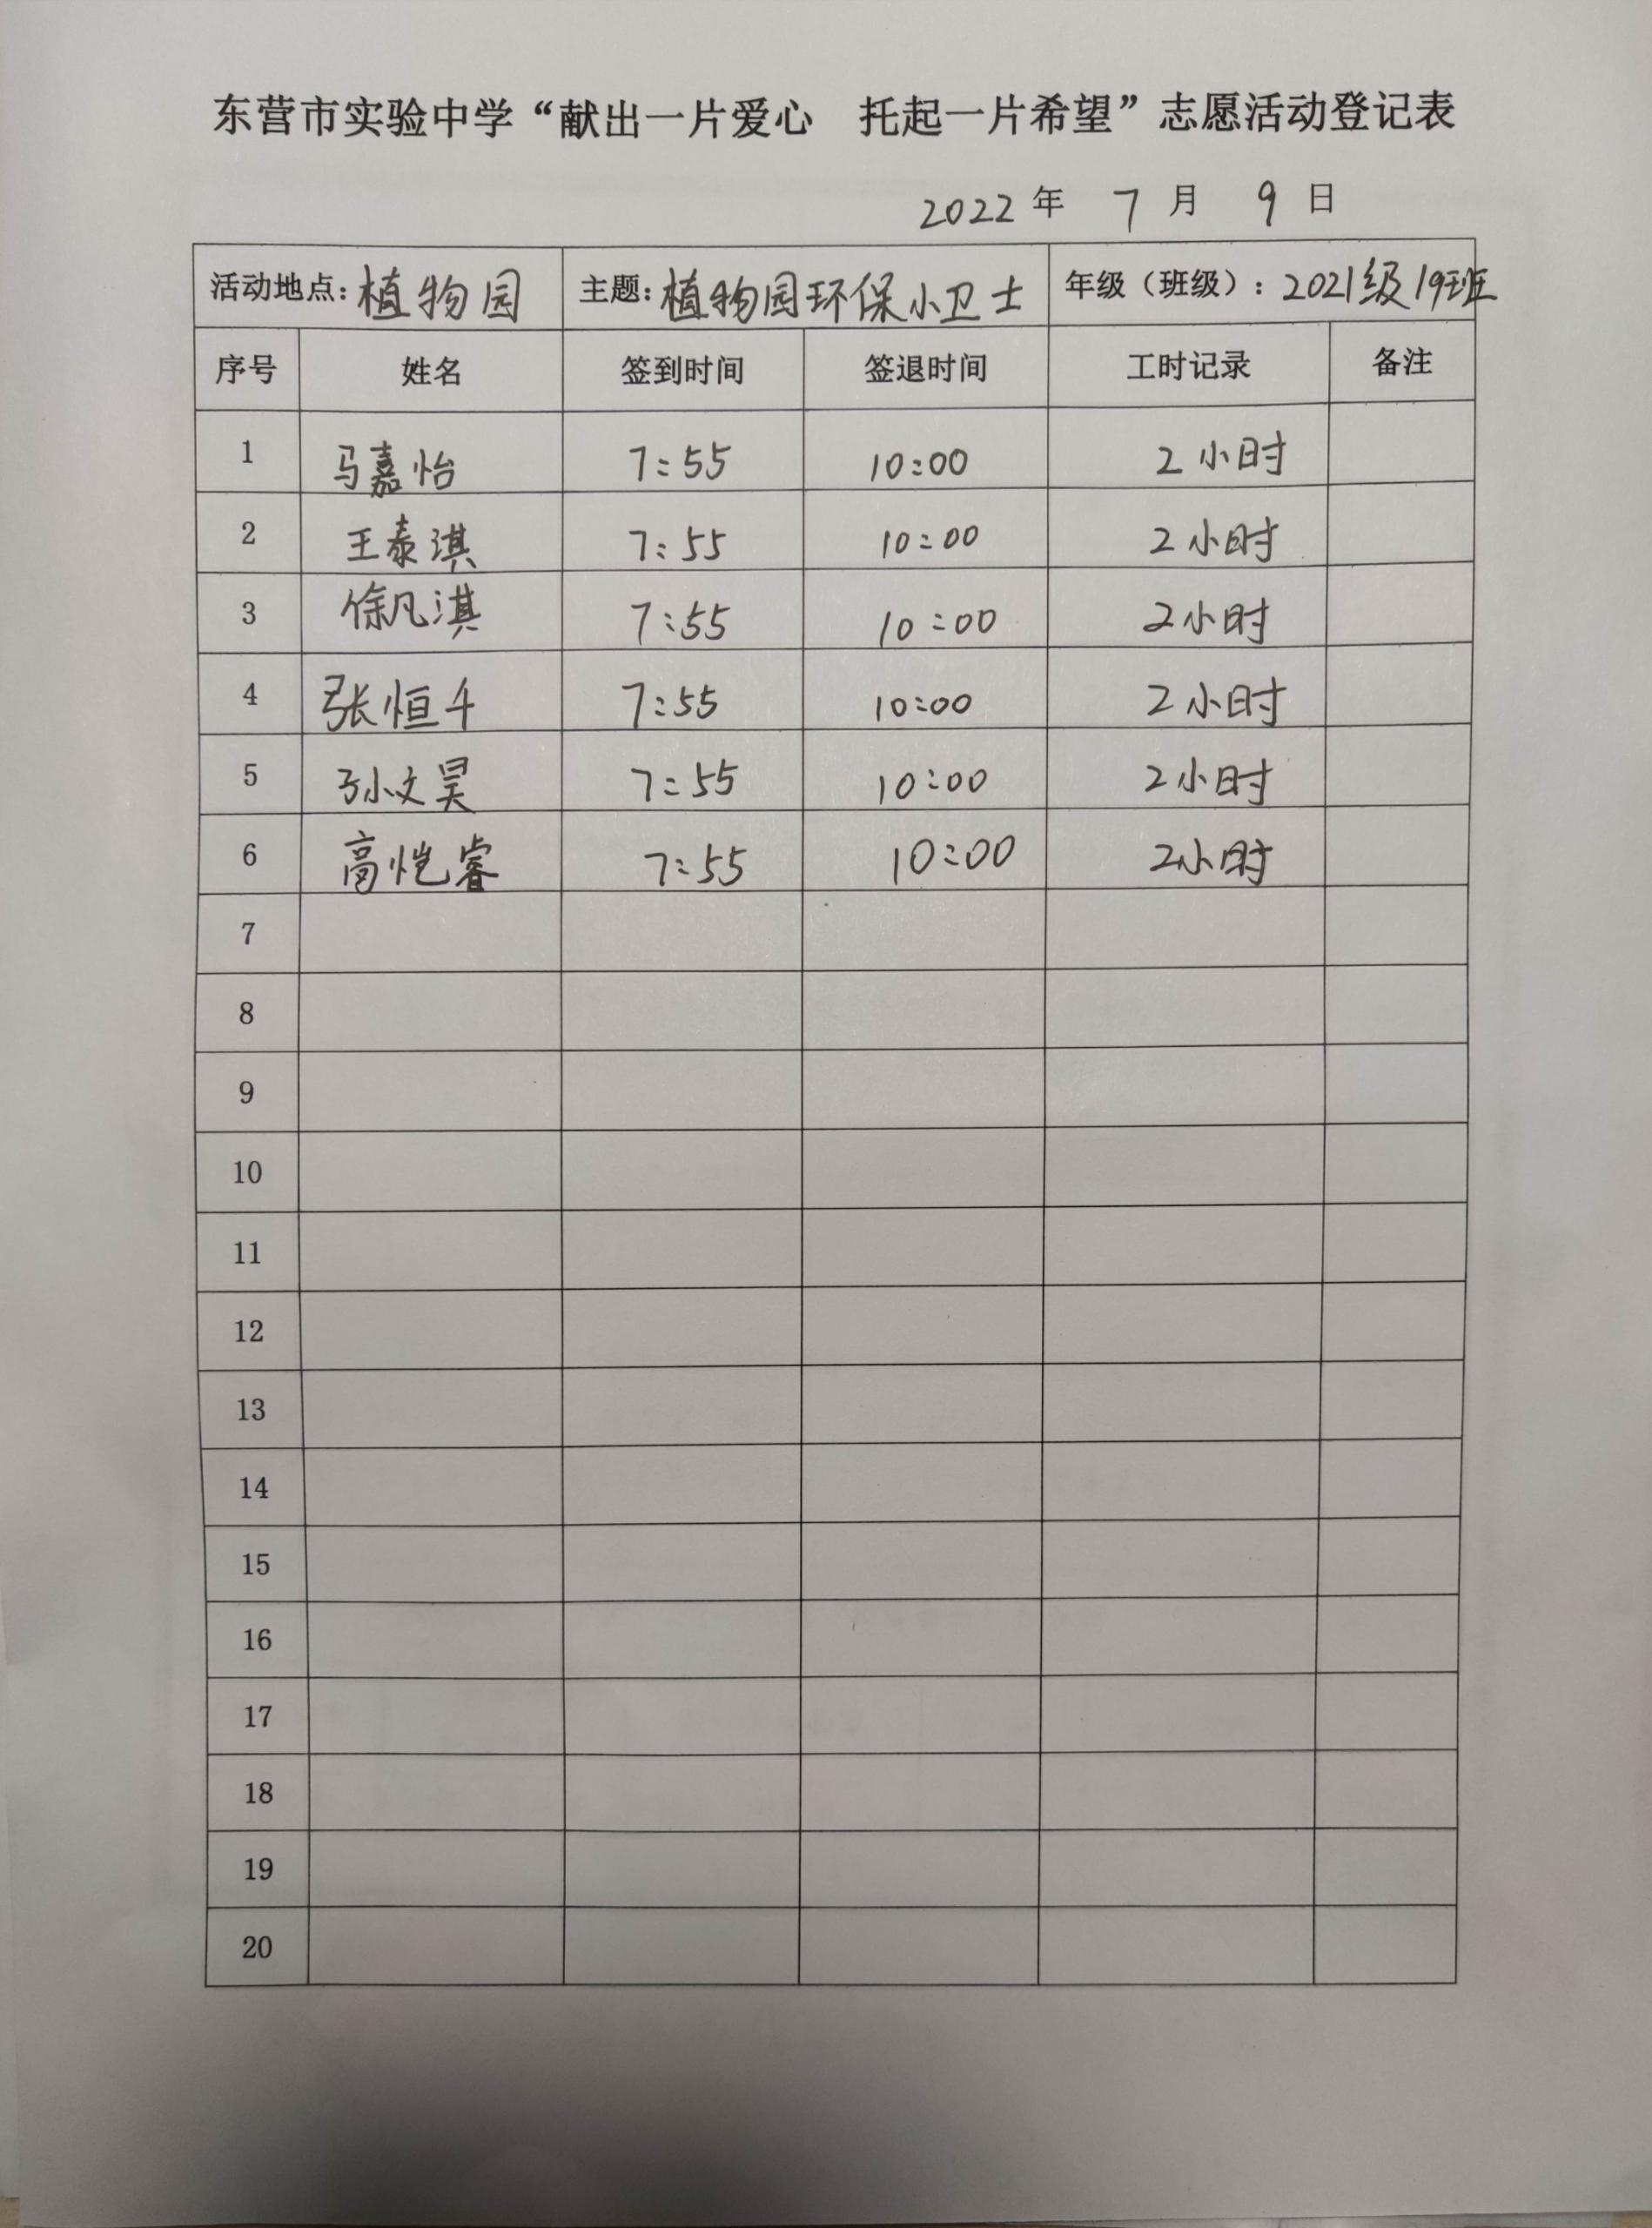 东营市实验中学“献出一片爱心 托起一片希望”志愿活动登记表
2022 年 7 月 9 日
活动地点: 植物园 主题: 植物园环保小卫士 年级（班级）: 2021级19班
序号 姓名 签到时间 签退时间 工时记录 备注
1 马嘉怡 7:55 10:00 2小时
2 王泰淇 7:55 10:00 2小时
3 徐凡淇 7:55 10:00 2小时
4 张恒千 7:55 10:00 2小时
5 孙文昊 7:55 10:00 2小时
6 高恺睿 7:55 10:00 2小时
7
8
9
10
11
12
13
14
15
16
17
18
19
20